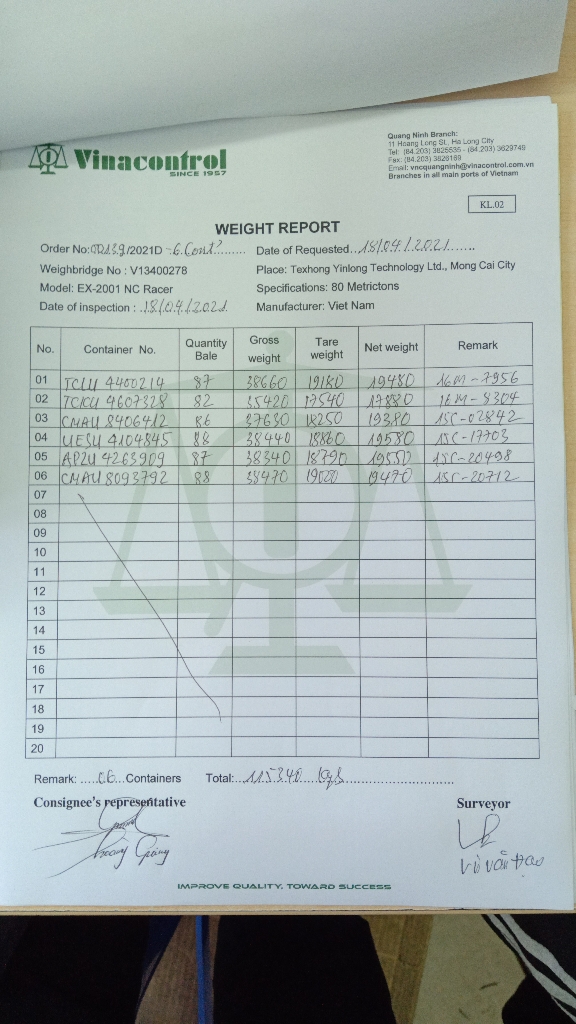 Vinacontrol
SINCE 1957
Quang Ninh Branch:
11 Hoang Long St., Ha Long City
Tel: (84.203) 3825535 - (84.203) 3629749
Fax: (84.203) 3826169
Email: vncquangninh@vinacontrol.com.vn
Branches in all main ports of Vietnam
KL.02
WEIGHT REPORT
Order No: 0R139/2021D - 6.Cont
Date of Requested...18/04/2021......
Weighbridge No : V13400278
Place: Texhong Yinlong Technology Ltd., Mong Cai City
Model: EX-2001 NC Racer
Specifications: 80 Metrictons
Date of inspection : .18/04/2021
Manufacturer: Viet Nam
No. Container No. Quantity Bale Gross weight Tare weight Net weight Remark
01 TCLU 4400214 87 38660 19180 19480 16M-7956
02 TCKU 4607328 82 35420 17540 17880 16M-8304
03 CMAU 8406412 86 37630 18250 19380 15C-02842
04 UESU 4104845 88 38440 18860 19580 15C-17703
05 APZU 4263909 87 38340 18790 19550 15C-20498
06 CMAU 8093792 88 38470 19000 19470 15C-20712
07
08
09
10
11
12
13
14
15
16
17
18
19
20
Remark: .....06...Containers Total:...115340 kgs
Consignee's representative
Surveyor
Hoang Giang
Vũ Văn Đạo
IMPROVE QUALITY, TOWARD SUCCESS